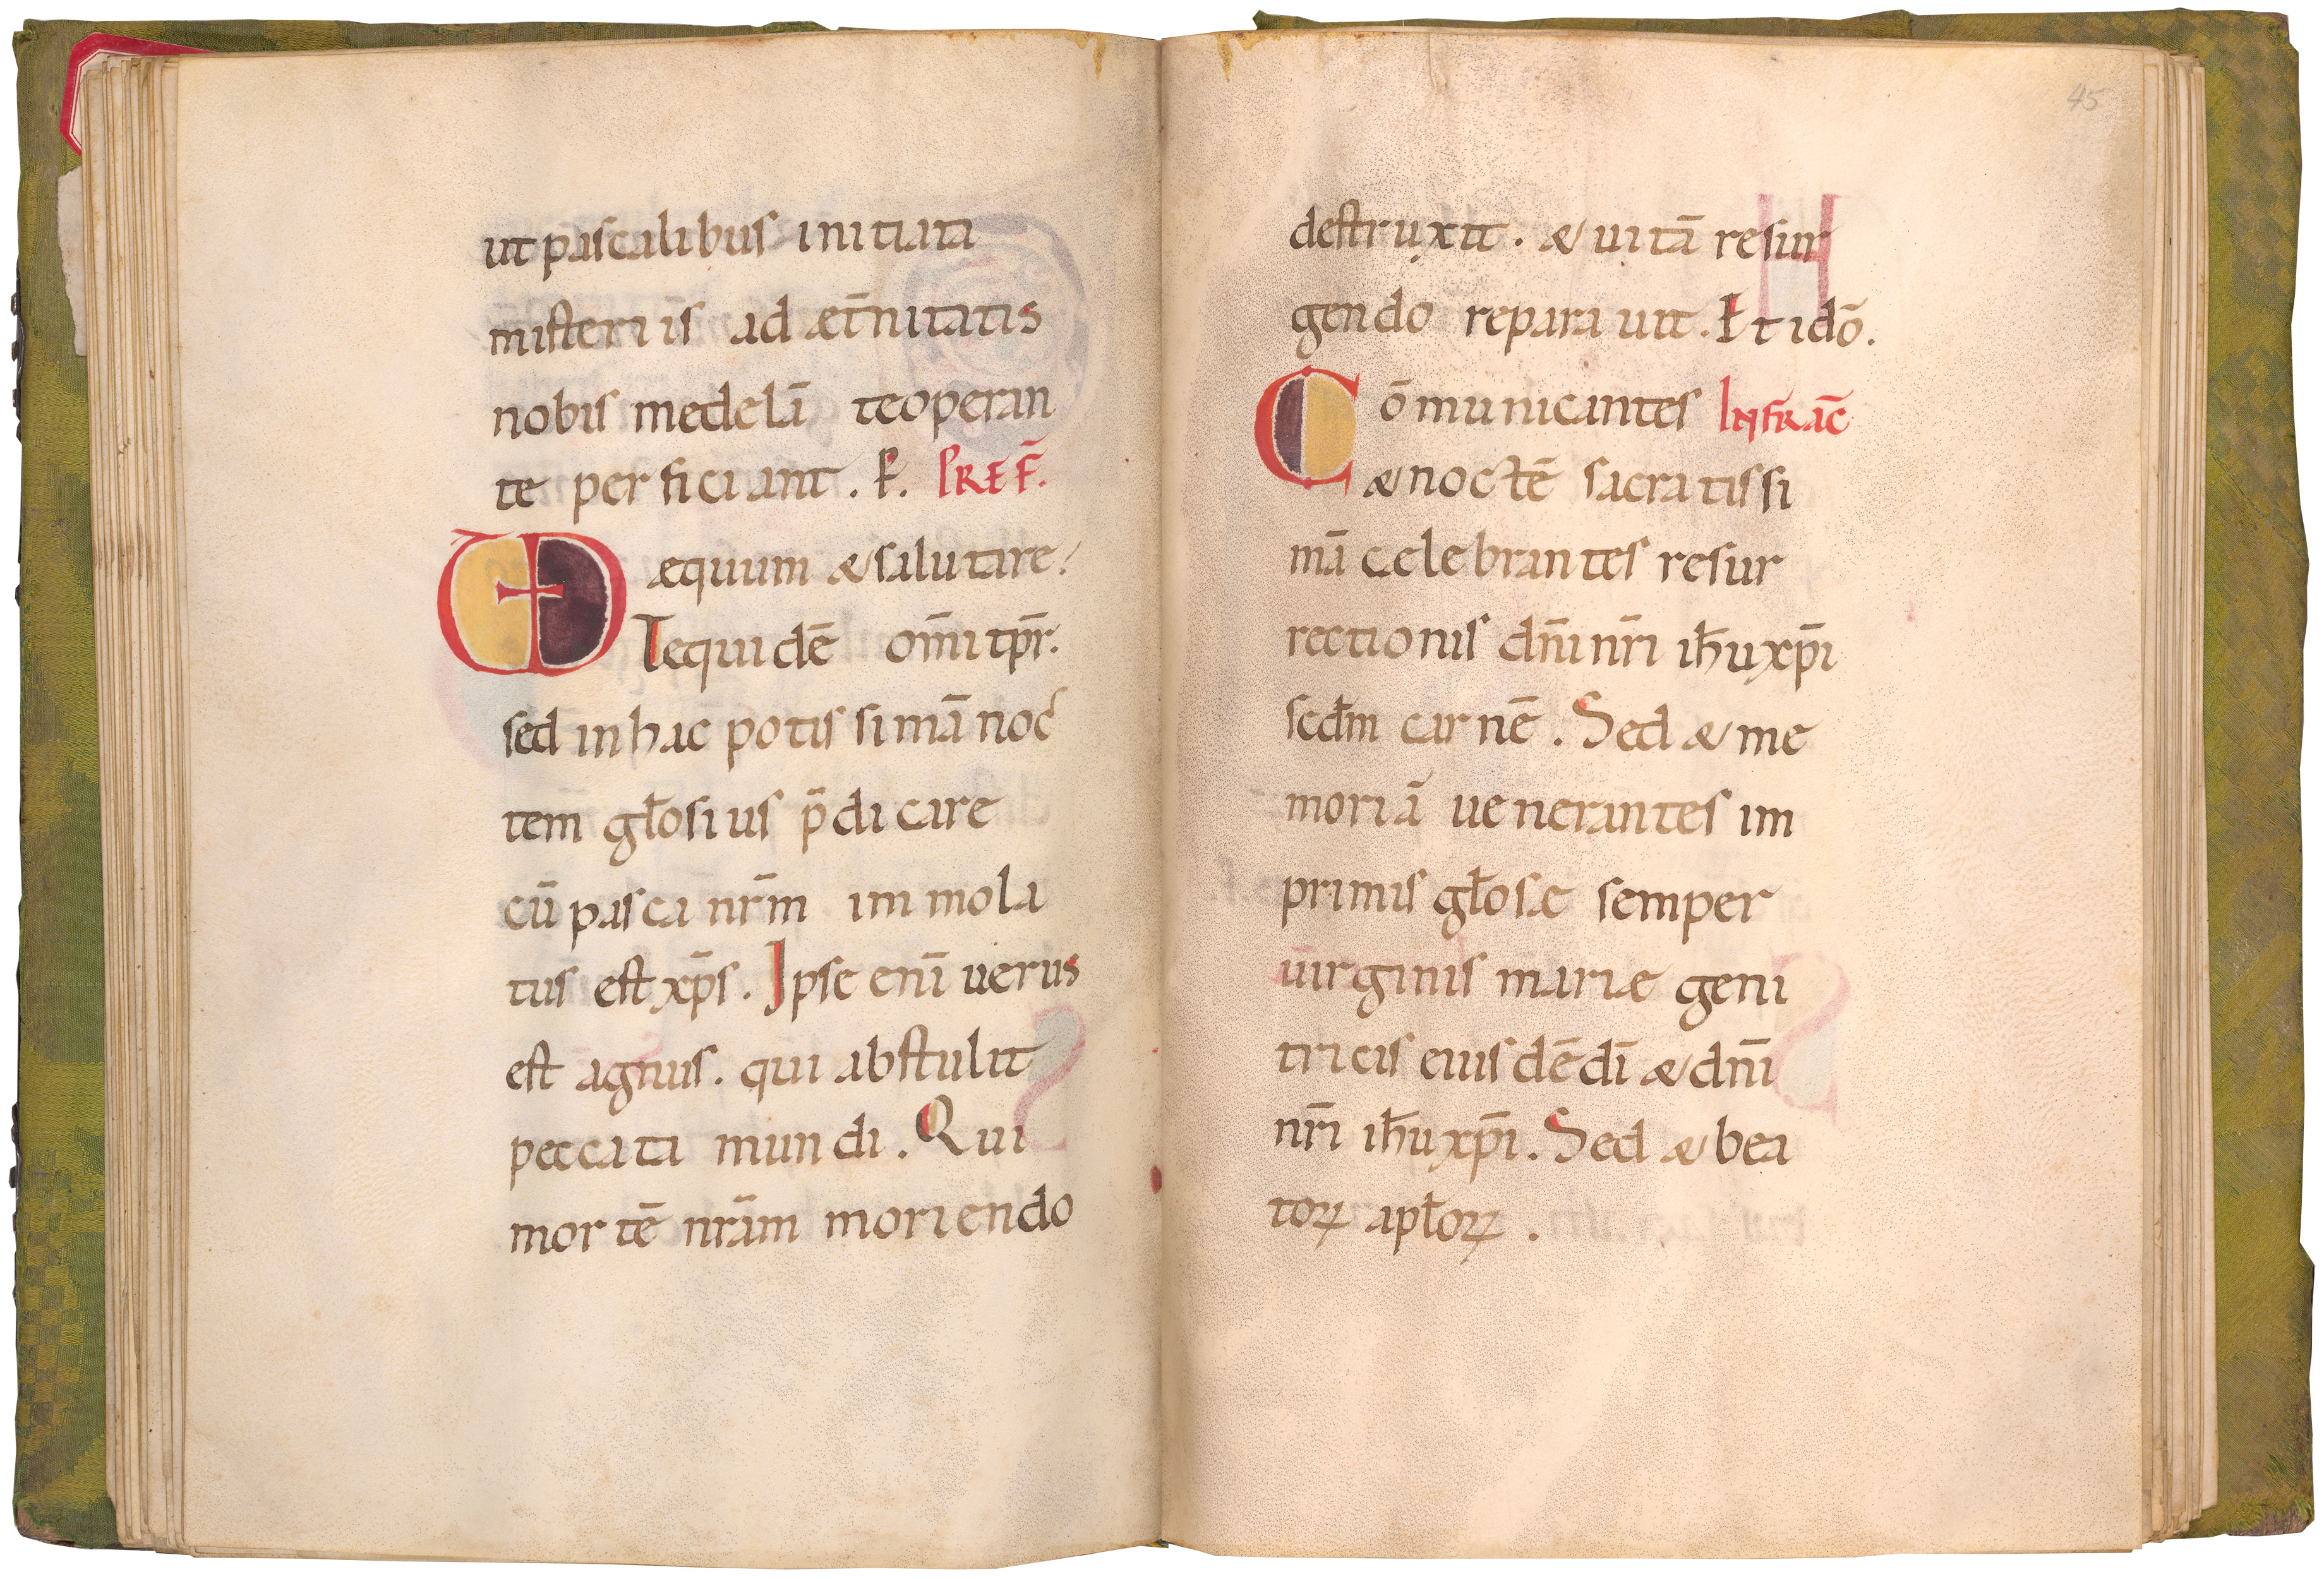 ut pascalibus initiata
misteriis ad æt̄nitatis
nobis medelā te operan
te perficiant. P̄. PREF̄.
VD æquum & salutare.
Te quidē om̄itp̄r.
sed in hac potissimā noc
tem gl̄osius p̄dicare
cū pasca nr̄m immola
tus est xp̄s. Ipse enī uerus
est agnus. qui abstulit
peccata mundi. Qui
mortē nr̄am moriendo
45
destruxit. & uitā resur
gendo reparauit. Et idō.
Cōmunicantes INFRA ĀC
& noctē sacratissi
mā celebrantes resur
rectionis dn̄i nr̄i ih̄u xp̄i
scdm̄ carnē. Sed & me
moriā uenerantes im
primis gl̄osæ semper
uirginis mariæ geni
tricis eiusdē dī & dn̄i
nr̄i ih̄u xp̄i. Sed & bea
toꝝ apl̄oꝝ.